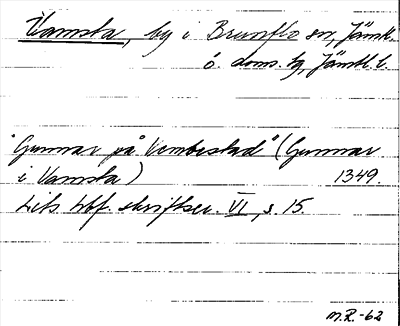 Vamsta, by i Brunflo sn, Jämtl.
ö. doms. tg, Jämtl. l.
"Gunnar på Vembestad" (Gunnar
i Vamsta) 1349.
hbf. skriftser. VI, s. 15.
M.R.-62